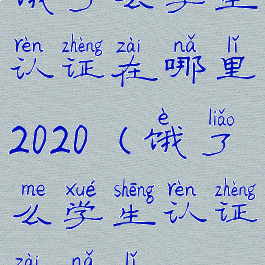 饿了么学生
rèn zhèng zài nǎ lǐ
认证在哪里
è liǎo
2020（饿了
me xué shēng rèn zhèng
么学生认证
zài nǎ lǐ